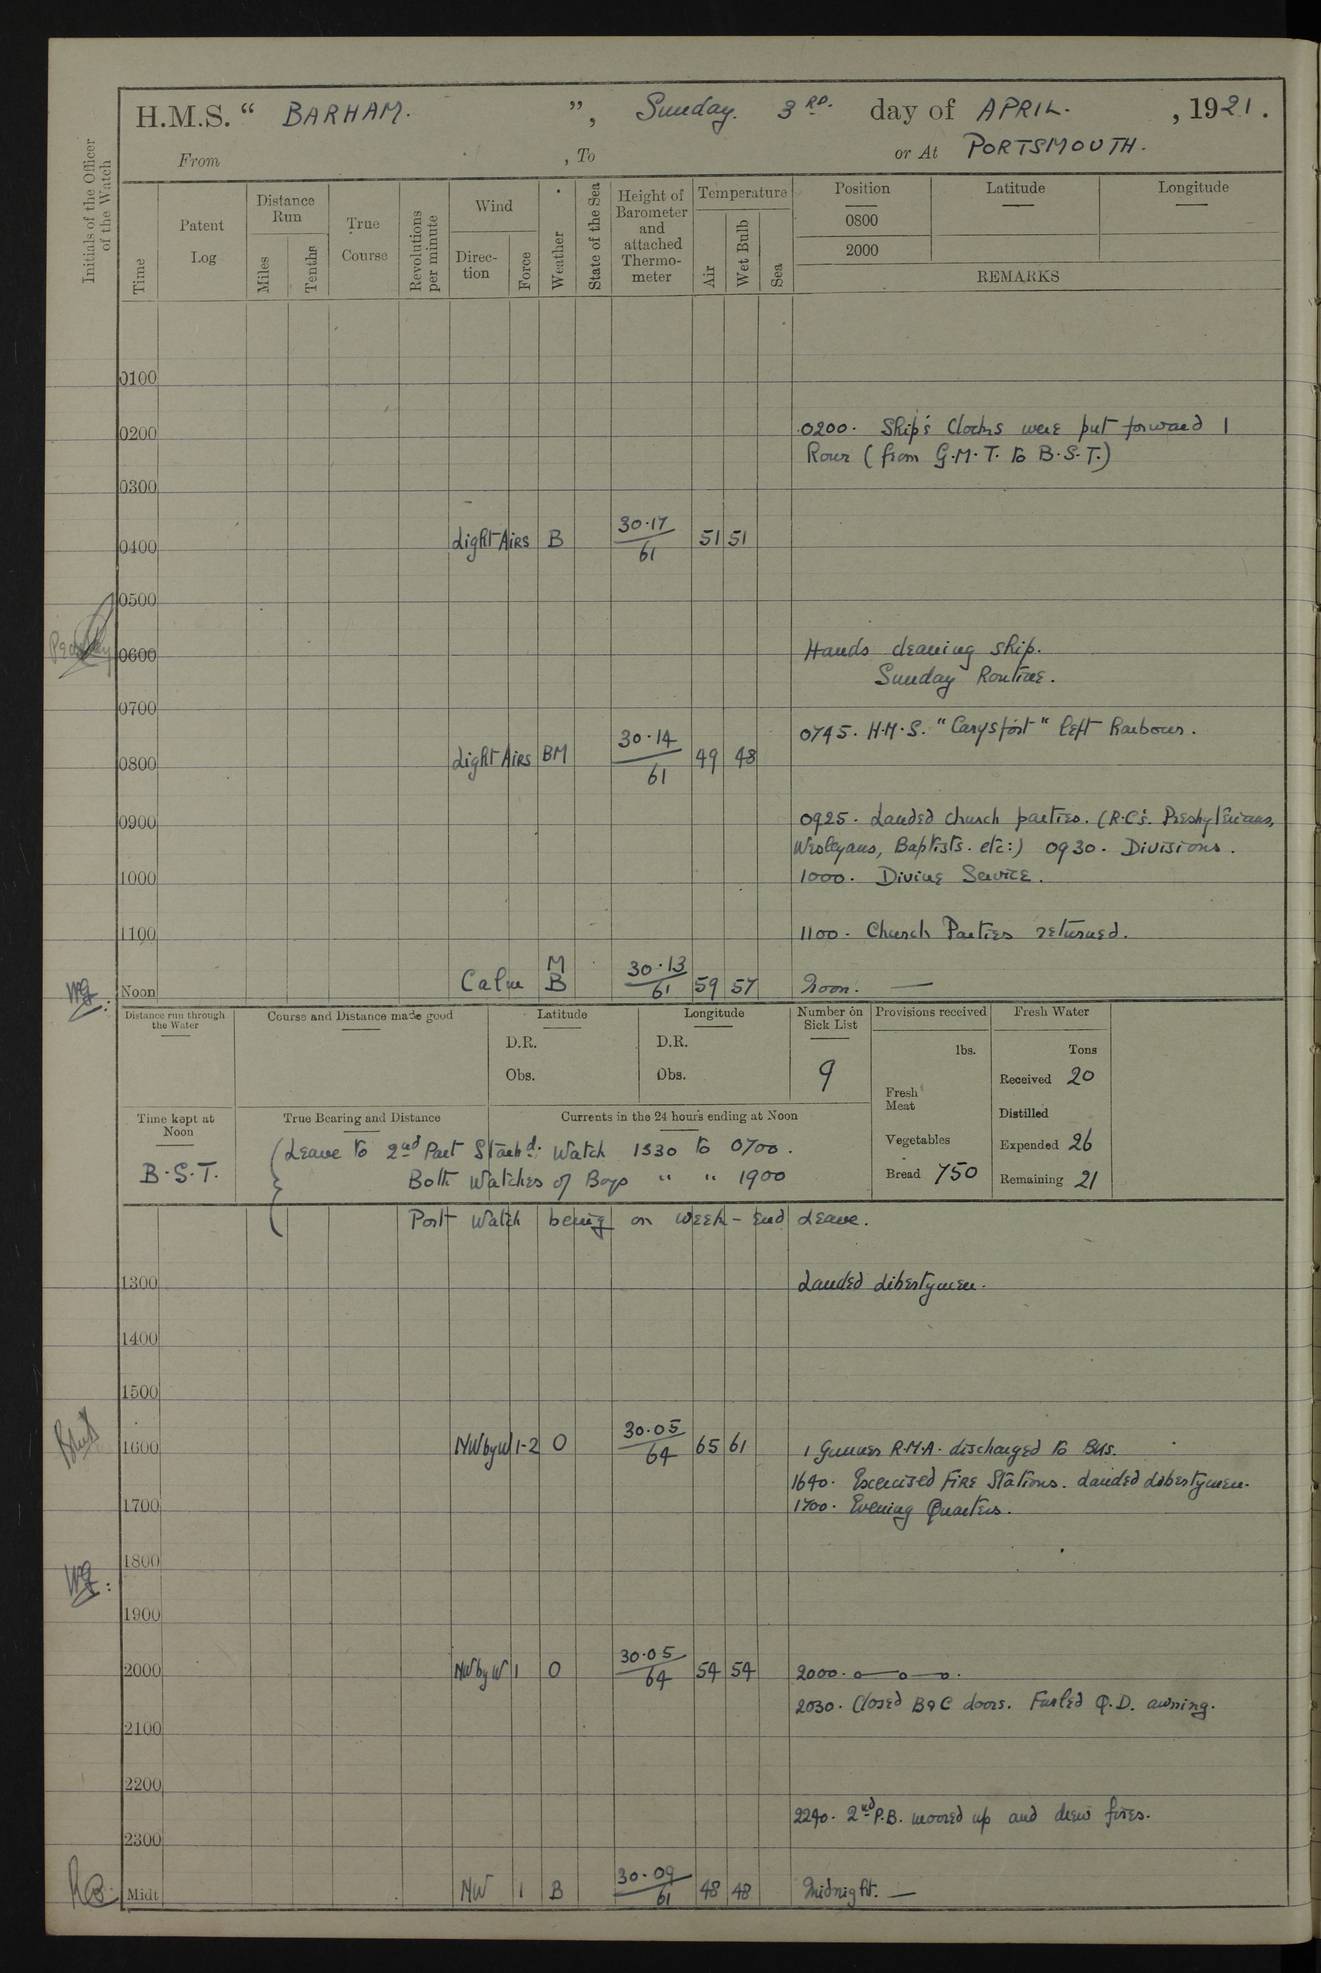 H.M.S. “ BARHAM. ”, Sunday. 3RD. day of APRIL. , 1921.
From , To or At PORTSMOUTH.
Initials of the Officer of the Watch
Time
Patent Log
Distance Run
Miles
Tenths
True Course
Revolutions per minute
Wind
Direction
Force
Weather
State of the Sea
Height of Barometer and attached Thermometer
Temperature
Air
Wet Bulb
Sea
Position Latitude Longitude
0800
2000
REMARKS
0100
0200 0200. Ship's Clocks were put forward 1
Hour (from G.M.T. to B.S.T.)
0300
0400 Light Airs B 30.17/61 51 51
0500
0600 Hands cleaning ship.
Sunday Routine.
0700
0745. H.M.S. "Carysfort" left harbour.
0800 Light Airs BM 30.14/61 49 48
0900 0925. Landed church parties. (R.C's. Presbyterians,
Wesleyans, Baptists. etc:) 0930. Divisions.
1000 1000. Divine Service.
1100 1100. Church Parties returned.
Noon Calm M B 30.13/61 59 57 Noon. —
Distance run through the Water
Course and Distance made good
Latitude
D.R.
Obs.
Longitude
D.R.
Obs.
Number on Sick List
9
Provisions received
lbs.
Fresh Meat
Vegetables
Bread 750
Fresh Water
Tons
Received 20
Distilled
Expended 26
Remaining 21
Time kept at Noon
B.S.T.
True Bearing and Distance
Currents in the 24 hours ending at Noon
(Leave to 2nd Part Starbd. Watch 1330 to 0700.
Both Watches of Boys " " 1900
Port Watch being on week-end leave.
1300 Landed libertymen.
1400
1500
1600 NWbyW 1-2 O 30.05/64 65 61 1 Gunner R.M.A. discharged to Bks.
1640. Exercised Fire Stations. Landed libertymen.
1700 1700. Evening Quarters.
1800
1900
2000 NWbyW 1 O 30.05/64 54 54 2000.
2030. Closed B & C doors. Furled Q.D. awning.
2100
2200
2240. 2nd P.B. moored up and drew fires.
2300
Midt NW 1 B 30.09/61 48 48 Midnight. —